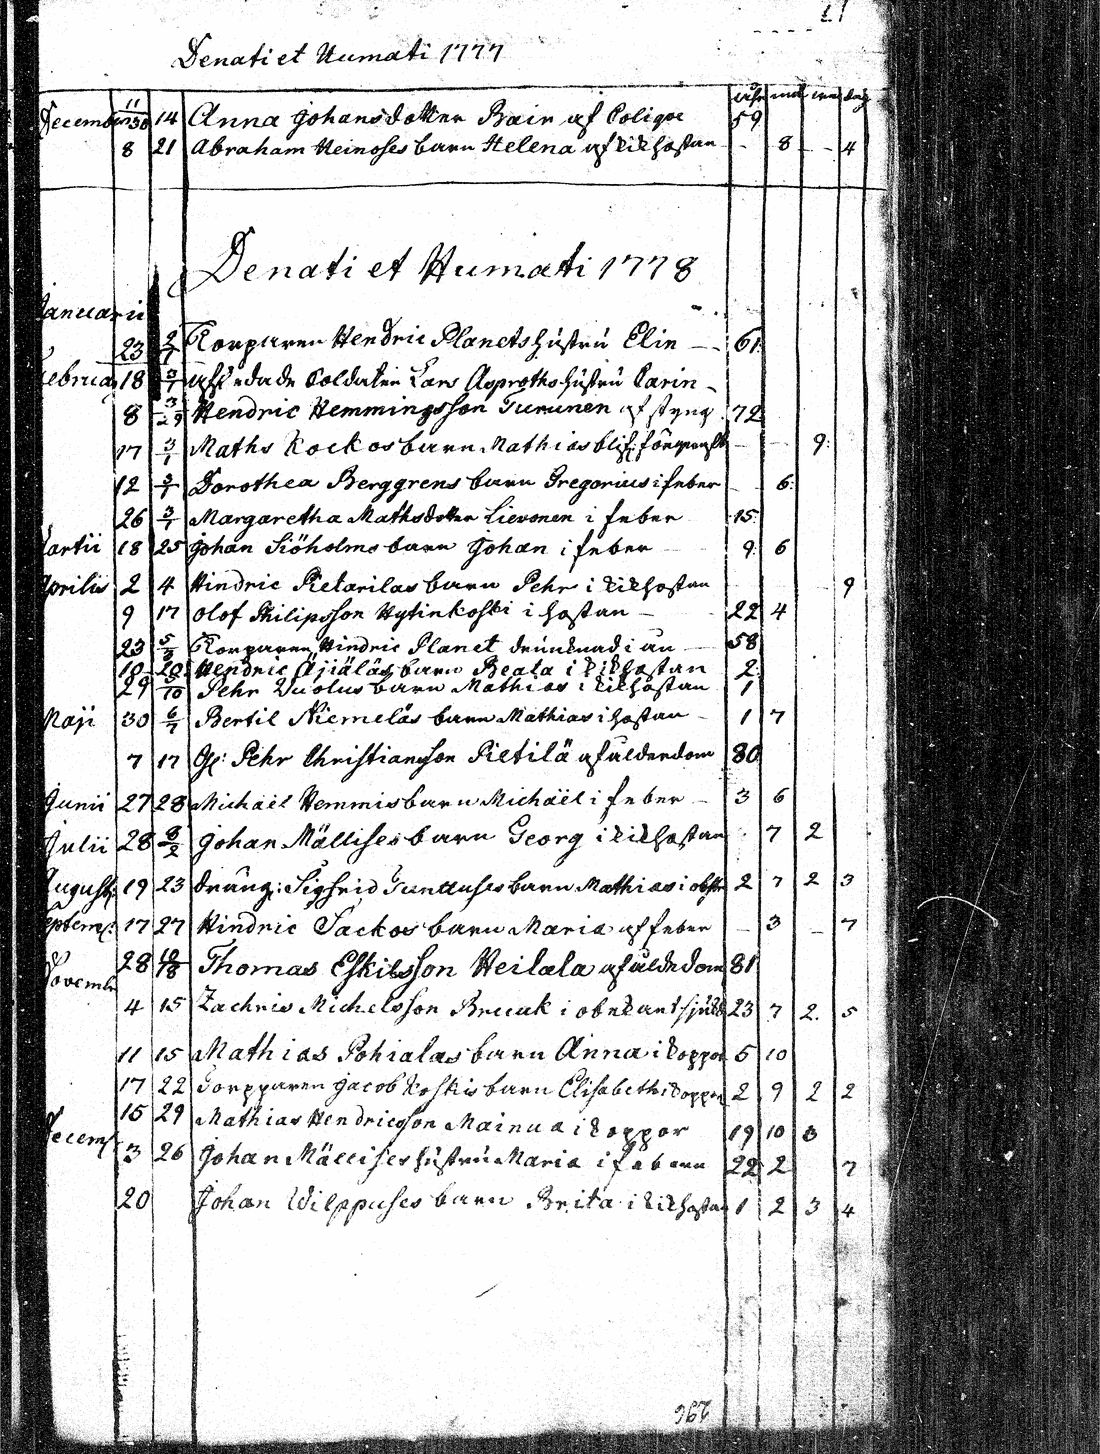 Denati et Humati 1777
åhr md dag
December 11/30 14 Anna Johansdotter Bair af Colique 59
8 21 Abraham Heinoses barn Helena af kikhostan - 8 - 4
Denati et Humati 1778
Januarii
23 2/1 Torparen Hendric Planets hustru Elin - 61
Februar 18 3/1 afskedade Soldaten Lars Asproths hustru Carin -
8 3/29 Hendric Hemmingsson Turunen af styng 72
17 3/1 Maths Kockos barn Mathias - 9
12 3/1 Dorothea Berggrens barn Gregorius i feber - 6
26 3/1 Margaretha Mathsdotter Lievonen i feber 15
Martii 18 25 Johan Siöholms barn Johan i feber 9 6
Aprilis 2 4 Hindric Pietarilas barn Pehr i kikhostan 9
9 17 Olof Philipsson Hytinkoski i hostan 22 4
23 5/3 Torparen Hindric Planet drunknad i ån 58
18 20 Hendric Äjiäläs barn Beata i kikhostan 2
29 5/10 Pehr Vuolus barn Mathias i kikhostan 1
Maji 30 6/7 Bertil Niemeläs barn Mathias i hostan - 1 7
7 17 Gl: Pehr Christiansson Pietilä af ålderdom 80
Junii 27 28 Michaël Hemmis barn Michaël i feber - 3 6
Julii 28 8/2 Johan Mällises barn Georg i kikhostan 7 2
August: 19 23 dräng: Sigfrid Tuntuses barn Mathias i 2 7 2 3
Septemb: 17 27 Hindric Sackos barn Maria af feber - 3 - 7
Novemb 28 10/18 Thomas Eskilsson Heilala af ålderdom 81
4 15 Zachris Michelsson Bruuk i obekant sjukd 23 7 2 5
11 15 Mathias Pohialas barn Anna i koppor 5 10
17 22 Torpparen Jacob Koskis barn Elisabeth i koppor 2 9 2 2
15 29 Mathias Hendricsson Mainua i koppor 19 10 3
Decemb 3 26 Johan Mällises hustru Maria i feberen 22 2 7
20 Johan Wilppuses barn Brita i kikhostan 1 2 3 4
296